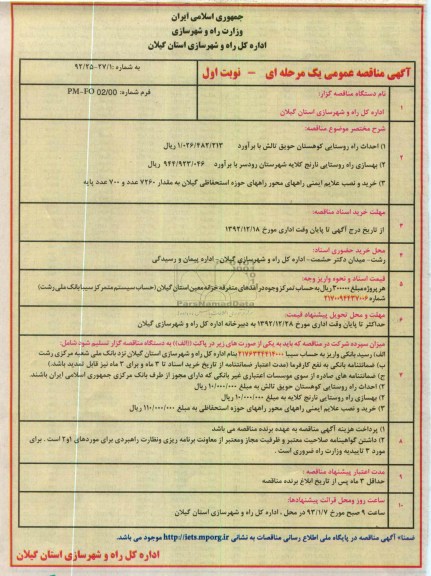 جمهوری اسلامی ایران
وزارت راه و شهرسازی
اداره کل راه و شهرسازی استان گیلان
آگهی مناقصه عمومی یک مرحله ای - نوبت اول
به شماره: ۹۲/۲۵-۲۷/۱
فرم شماره: PM-FO 02/00
نام دستگاه مناقصه گزار:
۱
اداره کل راه و شهرسازی استان گیلان
شرح مختصر موضوع مناقصه:
۱) احداث راه روستایی کوهستان حویق تالش با برآورد ۱/۰۲۶/۴۸۲/۲۱۳ ریال
۲
۲) بهسازی راه روستایی نارنج کلایه شهرستان رودسر با برآورد ۹۴۴/۹۲۳/۰۴۶ ریال
۳) خرید و نصب علایم ایمنی راههای محور راههای حوزه استحفاظی گیلان به مقدار ۷۲۶۰ عدد و ۷۰۰ عدد پایه
مهلت خرید اسناد مناقصه:
۳
از تاریخ درج آگهی تا پایان وقت اداری مورخ ۱۳۹۲/۱۲/۱۸
محل خرید حضوری اسناد:
۴
رشت- میدان دکتر حشمت- اداره کل راه و شهرسازی گیلان- اداره پیمان و رسیدگی
قیمت اسناد و نحوه واریز وجه:
۵
هر پروژه مبلغ ۳۰۰۰۰۰ ریال به حساب تمرکز وجوه درآمدهای متفرقه خزانه معین استان گیلان (حساب سیستم متمرکز سیبا بانک ملی رشت)
شماره ۲۱۷۰۰۹۴۴۳۷۰۰۶
مهلت و محل تحویل پیشنهاد قیمت:
۶
حداکثر تا پایان وقت اداری مورخ ۱۳۹۲/۱۲/۲۸ به دبیرخانه اداره کل راه و شهرسازی گیلان
میزان سپرده شرکت در مناقصه که باید به یکی از صورت های زیر در پاکت ((الف)) به دستگاه مناقصه گزار تسلیم شود شامل:
الف) رسید بانکی واریز به حساب سیبا ۲۱۷۶۴۳۴۴۱۴۰۰۰ بنام اداره کل راه و شهرسازی استان گیلان نزد بانک ملی شعبه مرکزی رشت
ب) ضمانتنامه بانکی به نفع کارفرما (مدت اعتبار ضمانتنامه از تاریخ خرید اسناد تا ۳ ماه و برای ۳ ماه نیز قابل تمدید باشد.)
۷
ج) ضمانتنامه های صادره از سوی موسسات اعتباری غیر بانکی که دارای مجوز از طرف بانک مرکزی جمهوری اسلامی ایران باشند.
۱) احداث راه روستایی کوهستان حویق تالش به مبلغ ۱۰/۰۰۰/۰۰۰ ریال
۲) بهسازی راه روستایی نارنج کلایه به مبلغ ۱۰/۰۰۰/۰۰۰ ریال
۳) خرید و نصب علایم ایمنی محور راههای حوزه استحفاظی به مبلغ ۱۱۰/۰۰۰/۰۰۰ ریال
۱) پرداخت هزینه آگهی مناقصه به عهده برنده مناقصه می باشد
۸
۲) داشتن گواهینامه صلاحیت معتبر و ظرفیت مجاز ومعتبر از معاونت برنامه ریزی ونظارت راهبردی برای موردهای ۱و۲ است. برای
مورد ۳ تاییدیه وزارت راه ضروری است.
مدت اعتبار پیشنهاد مناقصه:
۹
حداقل ۳ ماه پس از تاریخ ابلاغ برنده مناقصه
ساعت روز ومحل قرائت پیشنهادها:
۱۰
ساعت ۹ صبح مورخ ۹۳/۱/۷ در محل، اداره کل راه و شهرسازی استان گیلان
ضمناً آگهی مناقصه در پایگاه ملی اطلاع رسانی مناقصات به نشانی http://iets.mporg.ir موجود می باشد.
اداره کل راه و شهرسازی استان گیلان